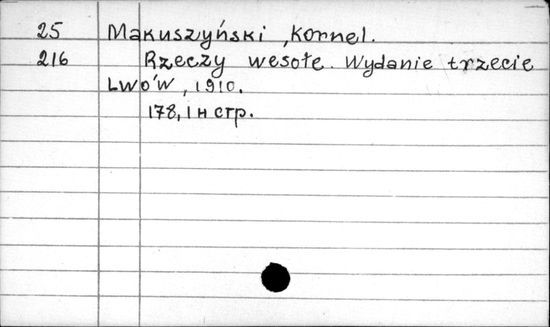 25 Makuszyński, Kornel.
216 Rzeczy wesołe. Wydanie trzecie
Lwów, 1910.
178, 1 н стр.